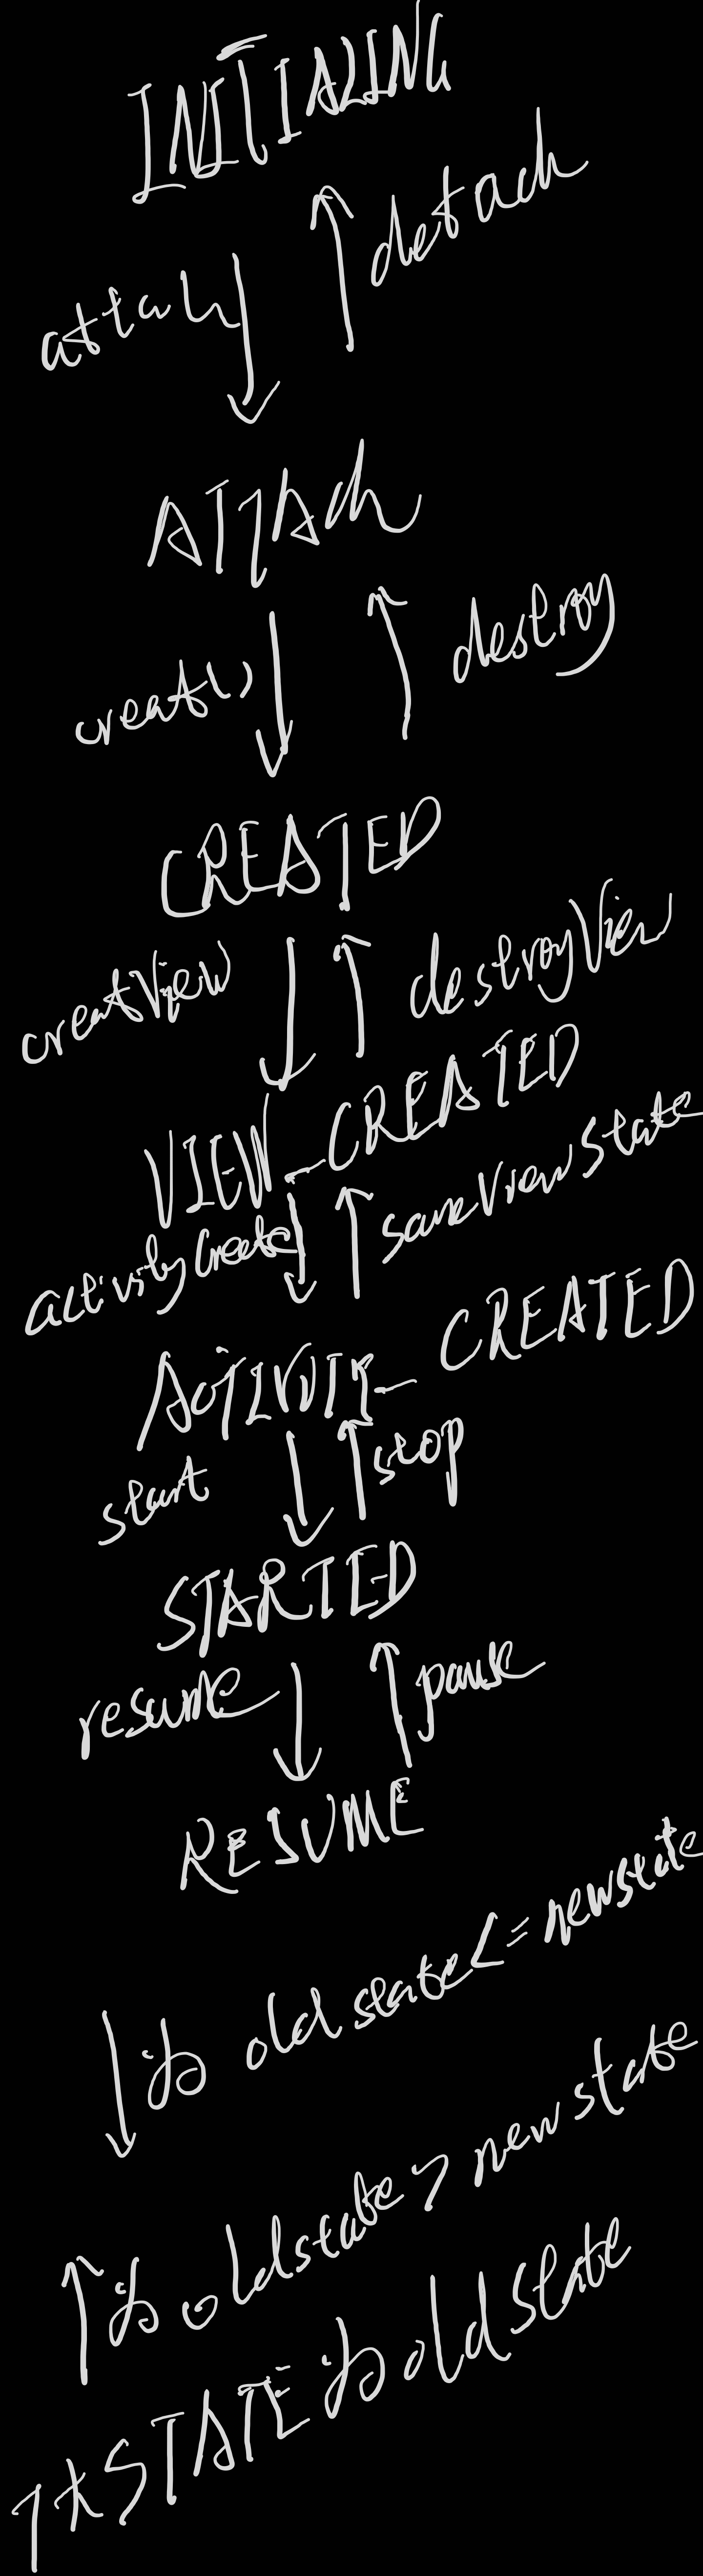 INITIALING
attach
detach
ATTACh
creat()
destroy
CREATED
creatView
destroyView
VIEW_CREATED
activityCreate
saveViewState
ACTIVITY_CREATED
start
stop
STARTED
resume
pause
RESUME
↓为 oldstate<=newstate
↑为 oldstate>newstate
个大STATE为oldstate